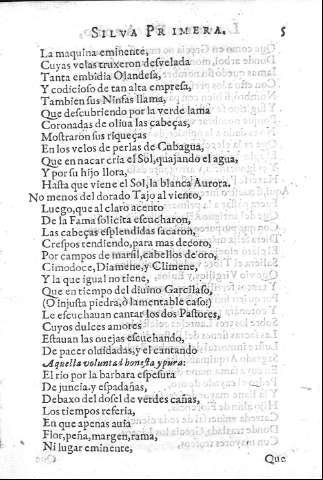 SILVA PRIMERA. 5
La maquina eminente,
Cuyas velas truxeron desvelada
Tanta embidia Olandesa,
Y codicioso de tan alta empresa,
Tambien sus Ninfas llama,
Que descubriendo por la verde lama
Coronadas de oliua las cabeças,
Mostraron sus riqueças
En los velos de perlas de Cubagua,
Que en nacar cria el Sol, quajando el agua,
Y por su hijo llora,
Hasta que viene el Sol, la blanca Aurora.
No menos del dorado Tajo al viento,
Luego, que al claro acento
De la Fama solicita escucharon,
Las cabeças esplendidas sacaron,
Crespos tendiendo, para mas decoro,
Por campos de marfil, cabellos de oro,
Cimodoce, Diamene, y Climene,
Y la que igual no tiene,
Que en tiempo del diuino Garcilaso,
(O injusta piedra, ò lamentable caso!)
Le escuchauan cantar los dos Pastores,
Cuyos dulces amores
Estauan las ouejas escuchando,
De pacer oluidadas, y el cantando
Aquella voluntad honesta y pura:
El rio por la barbara espesura
De juncia, y espadañas,
Debaxo del dosel de verdes cañas,
Los tiempos referia,
En que apenas auia
Flor, peña, margen, rama,
Ni lugar eminente,
Que